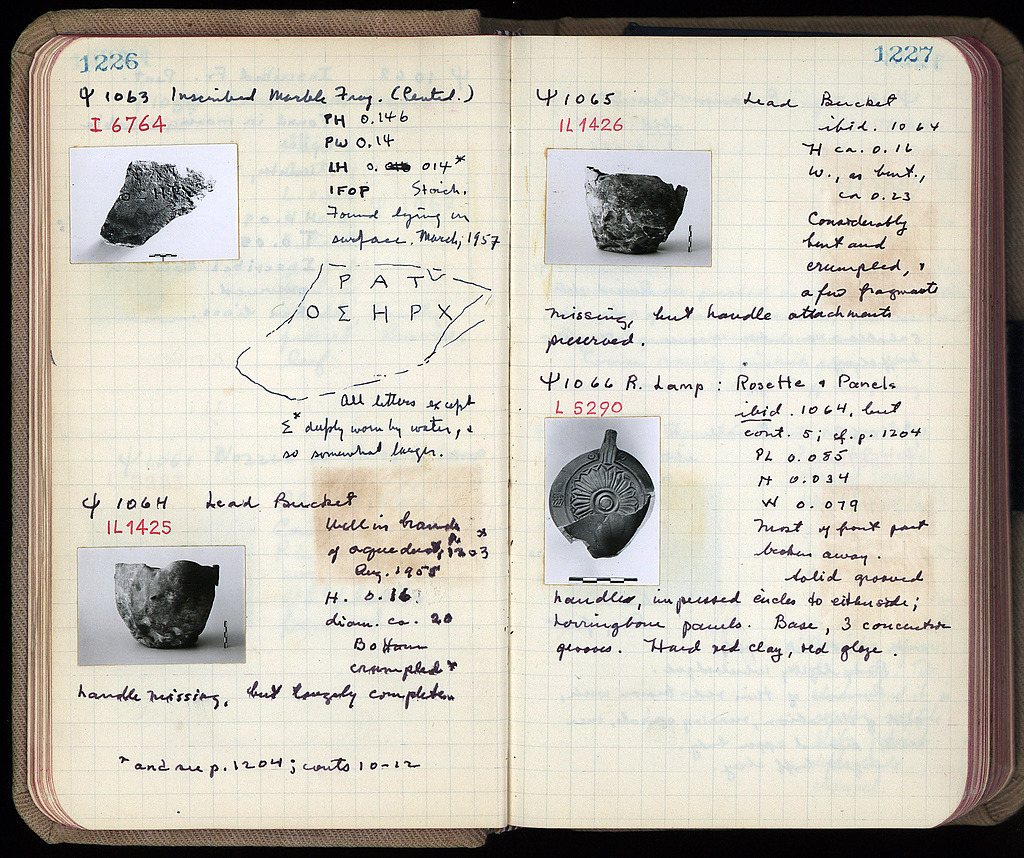 1226
Ψ 1063 Inscribed Marble Frag. (Pentel.)
I 6764
PH 0.146
PW 0.14
LH 0. 014*
IFOP Stoich.
Found lying in
surface. March, 1957
Ρ Α Τ
Ο Σ Η Ρ Χ
All letters except
Σ* deeply worn by water, &
so somewhat larger.
Ψ 1064 Lead Bucket
IL1425
Well in branch
of aqueduct, p. 1203*
Aug. 1955
H. 0.16
diam. ca. 20
Bottom
crumpled*
handle missing, but largely complete.
* and see p. 1204; conts 10-12
1227
Ψ 1065 Lead Bucket
IL1426
ibid. 1064
H ca. 0.16
W., as bent.,
ca 0.23
Considerably
bent and
crumpled, &
a few fragments
missing, but handle attachments
preserved.
Ψ 1066 R. Lamp : Rosette & Panels
L 5290
ibid. 1064, but
cont. 5; cf. p. 1204
PL 0.085
H 0.034
W 0.079
Most of front part
broken away.
Solid grooved
handle, impressed circles to either side;
herringbone panels. Base, 3 concentric
grooves. Hard red clay, red glaze.